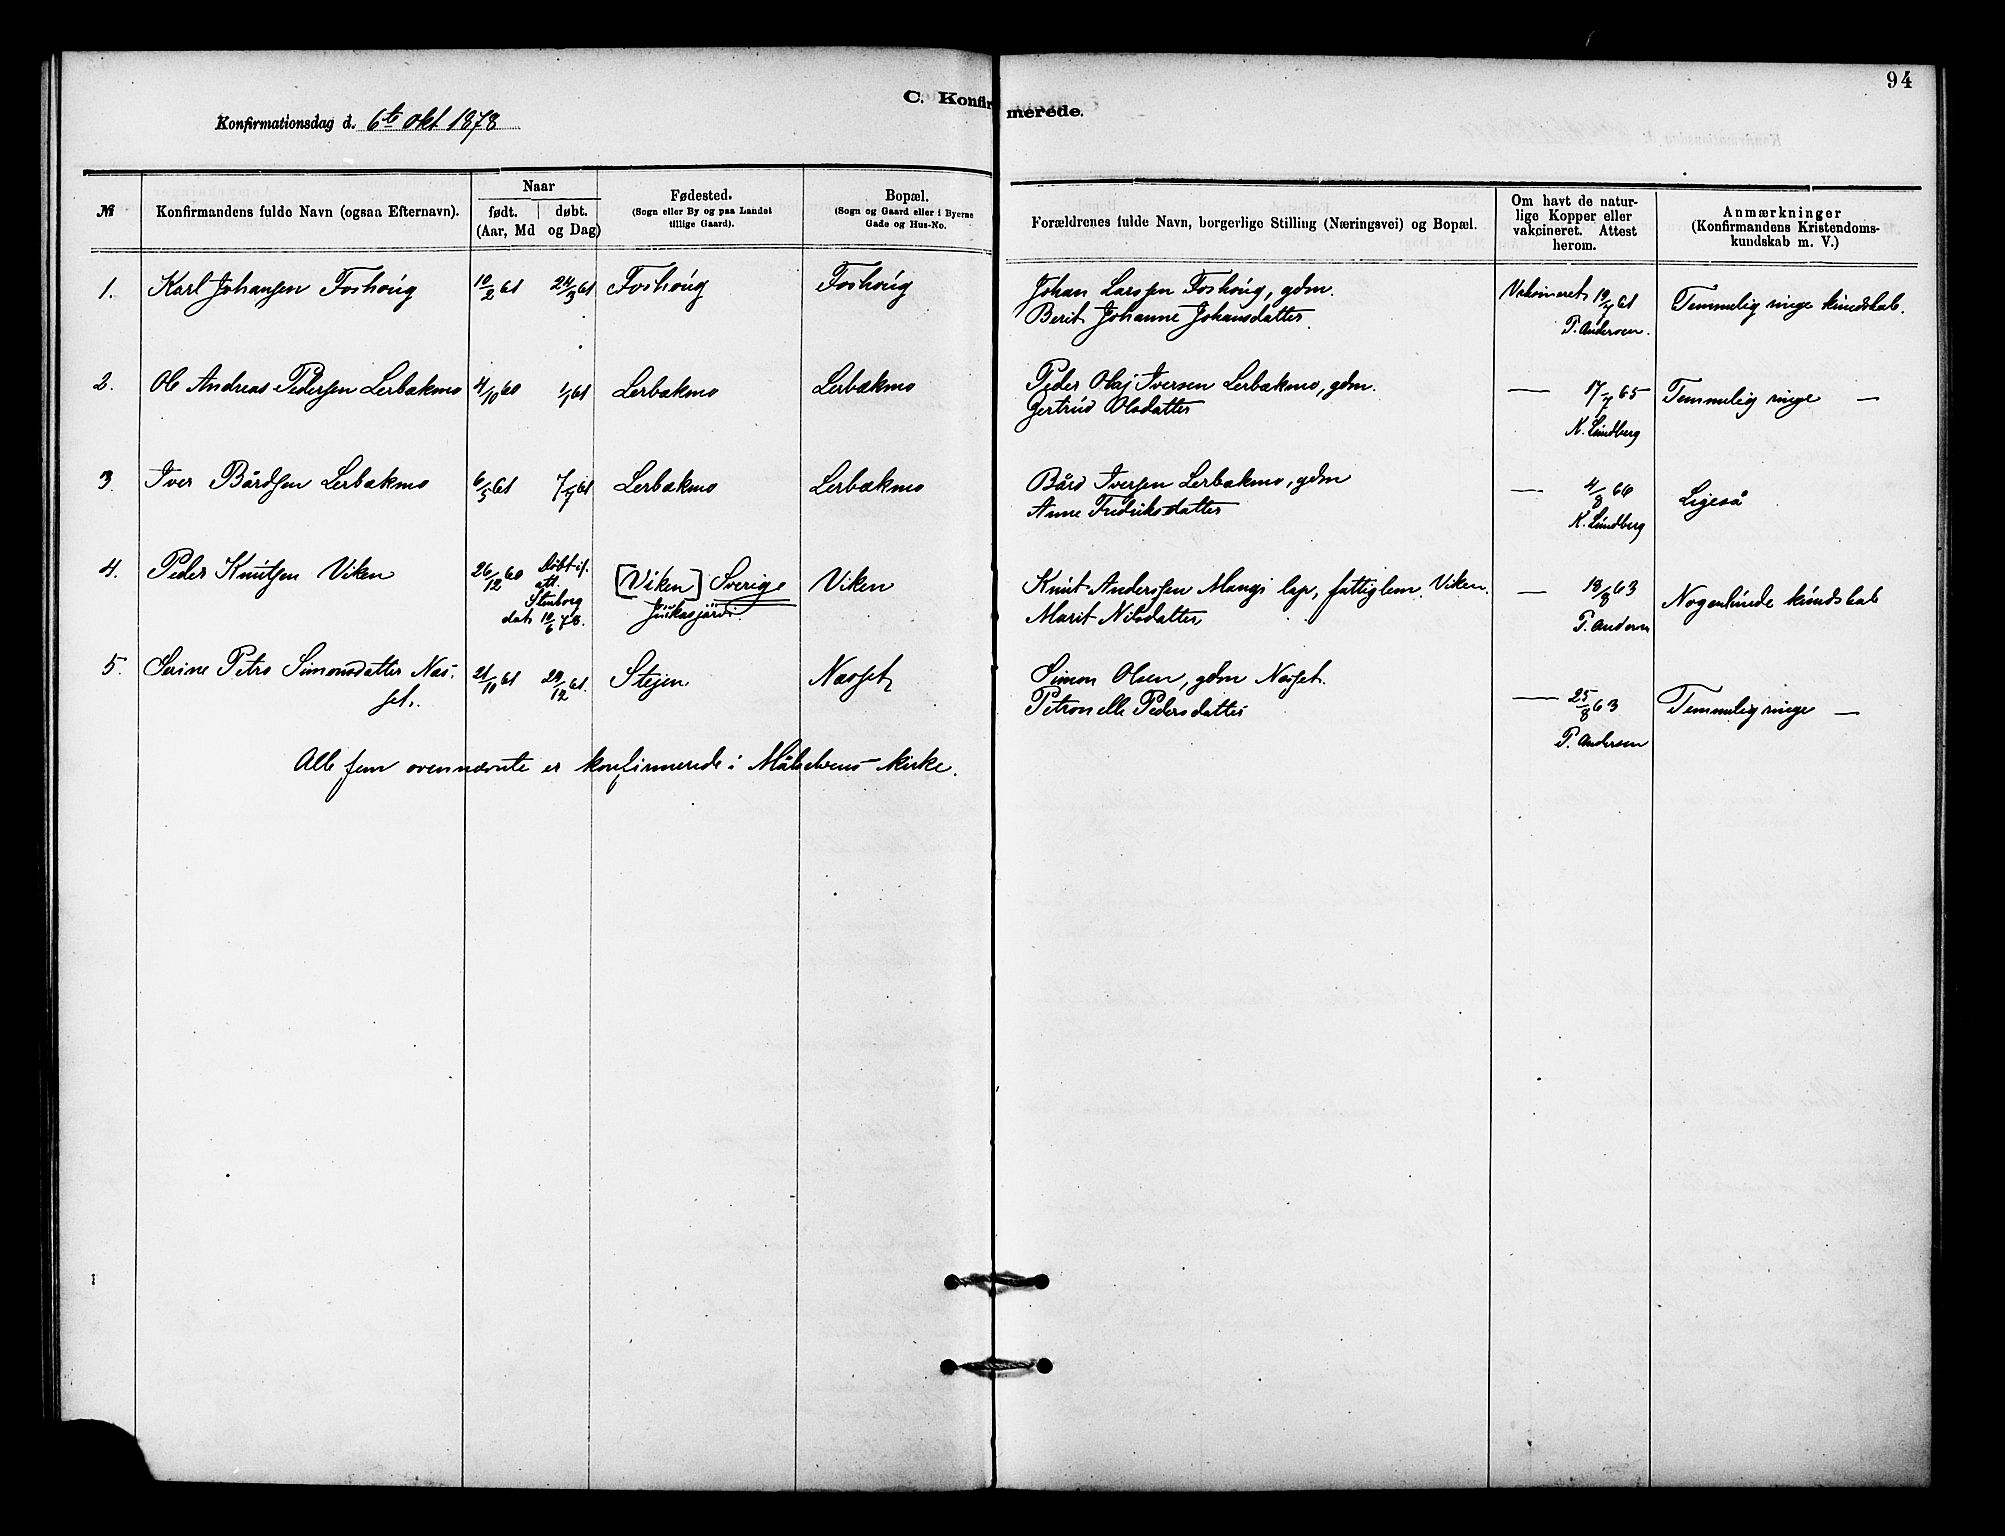 94
C. Konfirmerede.
Konfirmationsdag d. 6te okt 1878
№
Konfirmandens fulde Navn (ogsaa Efternavn).
Naar
født. døbt.
(Aar, Md og Dag)
Fødested.
(Sogn eller By og paa Landet
tillige Gaard).
Bopæl.
(Sogn og Gaard eller i Byerne
Gade og Hus-No.
Forældrenes fulde Navn, borgerlige Stilling (Næringsvei) og Bopæl.
Om havt de natur-
lige Kopper eller
vakcineret. Attest
herom.
Anmærkninger
(Konfirmandens Kristendoms-
kundskab m. V.)
1. Karl Johansen Foshoug 10/2 61 24/3 61 Foshoug Foshoug Johan Larssen Foshoug, gdm. Vakcineret 61 Temmelig ringe kundskab.
Berit Johanne Johansdatter. P. Andersen.
2. Ole Andreas Pedersen Lerbakmo 4/10 60 61 Lerbakmo Lerbakmo Peder Olaj Iversen Lerbakmo, gdm. — 17/7 65 Temmelig ringe —
Gertrud Olsdatter K. Lundberg
3. Iver Bårdsen Lerbakmo 6/5 61 7/7 61 Lerbakmo Lerbakmo Bård Iversen Lerbakmo, gdm — 4/8 66 Ligeså
Anne Fredriksdatter K. Lundberg
4. Peder Knutsen Viken 26/12 60 Døbt if. [Viken] Sverige Viken Knut Anderssen Mangi lap, fattiglem. Viken. — 18/8 63 Nogenlunde kundskab
att. Jukasjärdi. Marit Nilsdatter P. Andersen
Stenborg
dat. 10/6 78.
5. Serine Petra Simonsdatter Næs- 21/11 61 29/12 61. Stejen Næsset Simon Olsen, gdm Næsset. — 25/8 63 Temmelig ringe —
set. Petronelle Pedersdatter P. Andersen
Alle fem ovennævnte er konfirmerede i Målselvens kirke.